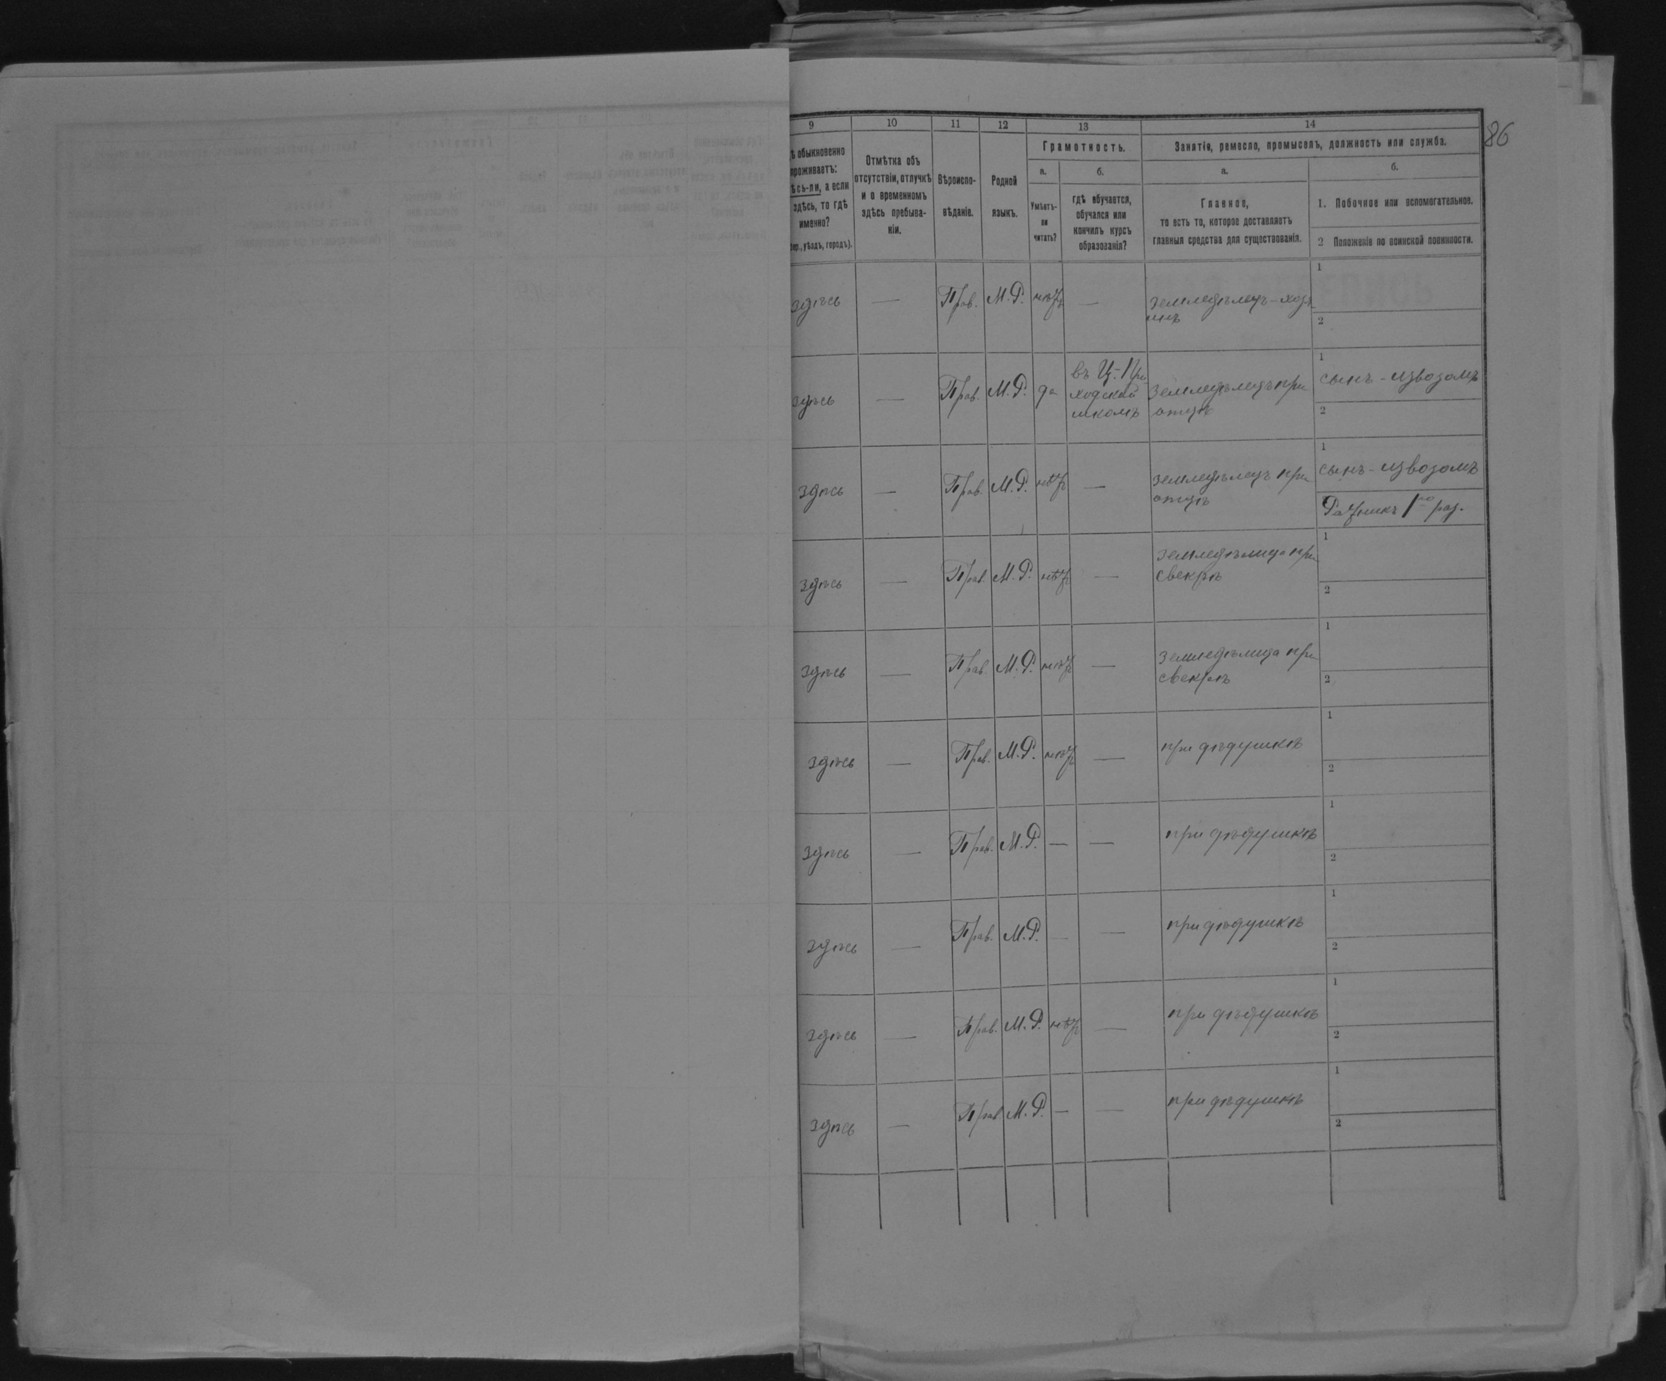 86
9 10 11 12 13 14
Грамотность. Занятія, ремесло, промыселъ, должность или служба.
обыкновенно
проживаетъ:
здѣсь-ли, а если
здѣсь, то гдѣ
именно?
уѣздъ, городъ).
Отмѣтка объ
отсутствіи, отлучкѣ
и о временномъ
здѣсь пребыва-
ніи.
Вѣроиспо-
вѣданіе.
Родной
языкъ.
а.
Умѣетъ-
ли
читать?
б.
гдѣ обучается,
обучался или
кончилъ курсъ
образованія?
а.
Главное,
то есть то, которое доставляетъ
главныя средства для существованія.
б.
1. Побочное или вспомогательное.
2 Положеніе по воинской повинности.
здѣсь — Прав. М.Р. нѣтъ — земледѣлецъ-хозя
инъ
1
2
здѣсь — Прав. М.Р. да въ Ц.-При
ходской
школѣ
земледѣлецъ при
отцѣ
1 сынъ - извозомъ
2
здѣсь — Прав. М.Р. нѣтъ — земледѣлецъ при
отцѣ
1 сынъ - извозомъ
Ратникъ 1го раз.
здѣсь — Прав М.Р. нѣтъ — земледѣлица при
свекрѣ
1
2
здѣсь — Прав. М.Р. нѣтъ — земледѣлица при
свекрѣ
1
2
здѣсь — Прав. М.Р. нѣтъ — при дѣдушкѣ
1
2
здѣсь — Прав. М.Р. — — при дѣдушкѣ
1
2
здѣсь — Прав. М.Р. — — при дѣдушкѣ
1
2
здѣсь — Прав. М.Р. нѣтъ — при дѣдушкѣ
1
2
здѣсь — Прав М.Р. — — при дѣдушкѣ
1
2